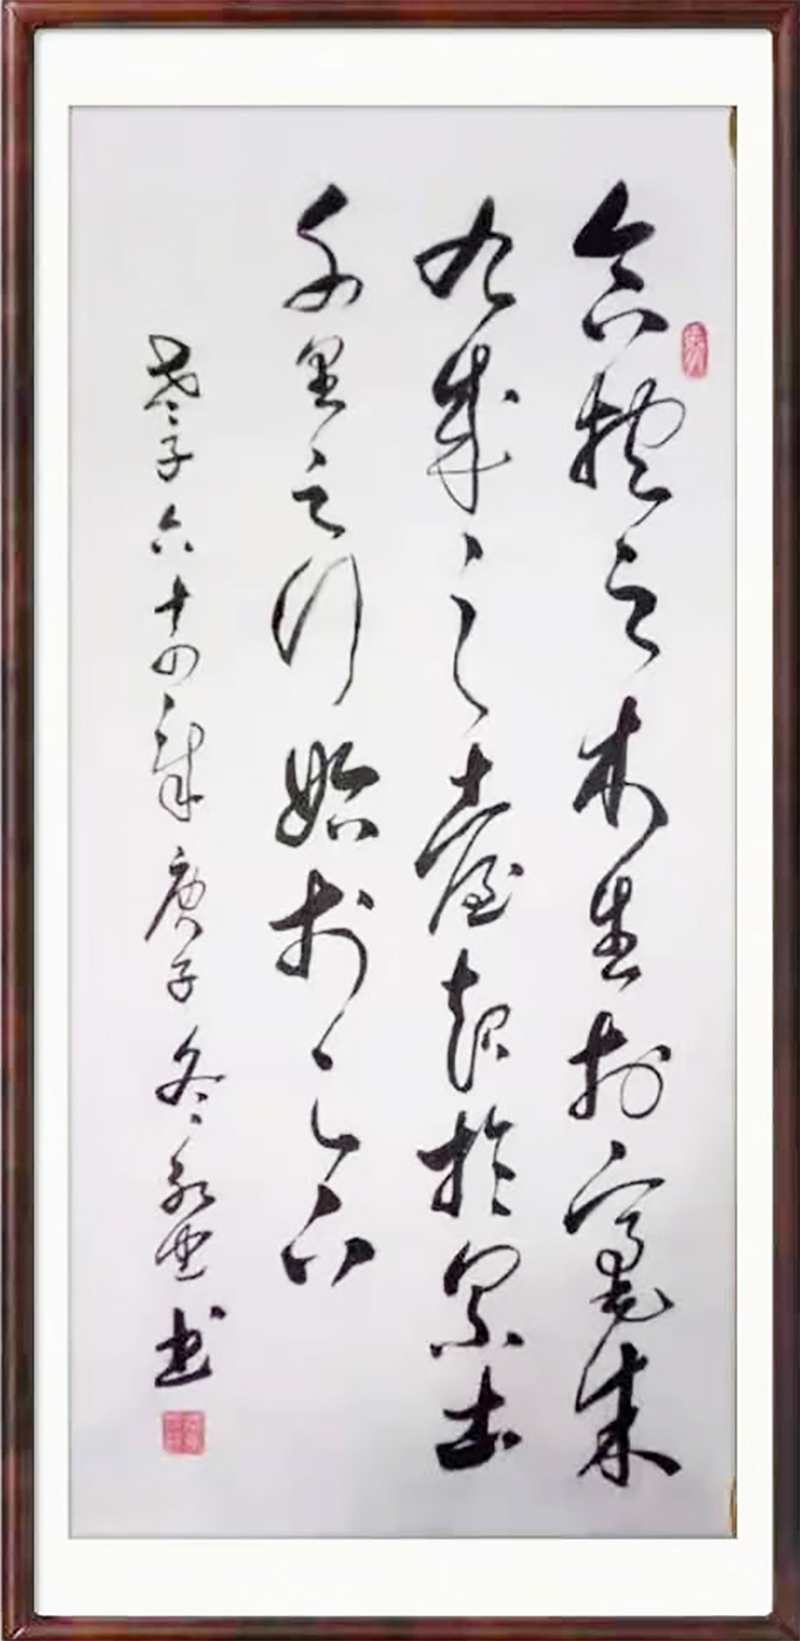 合抱之木生於毫末
九成之臺起於累土
千里之行始於足下
老子六十四章庚子冬书